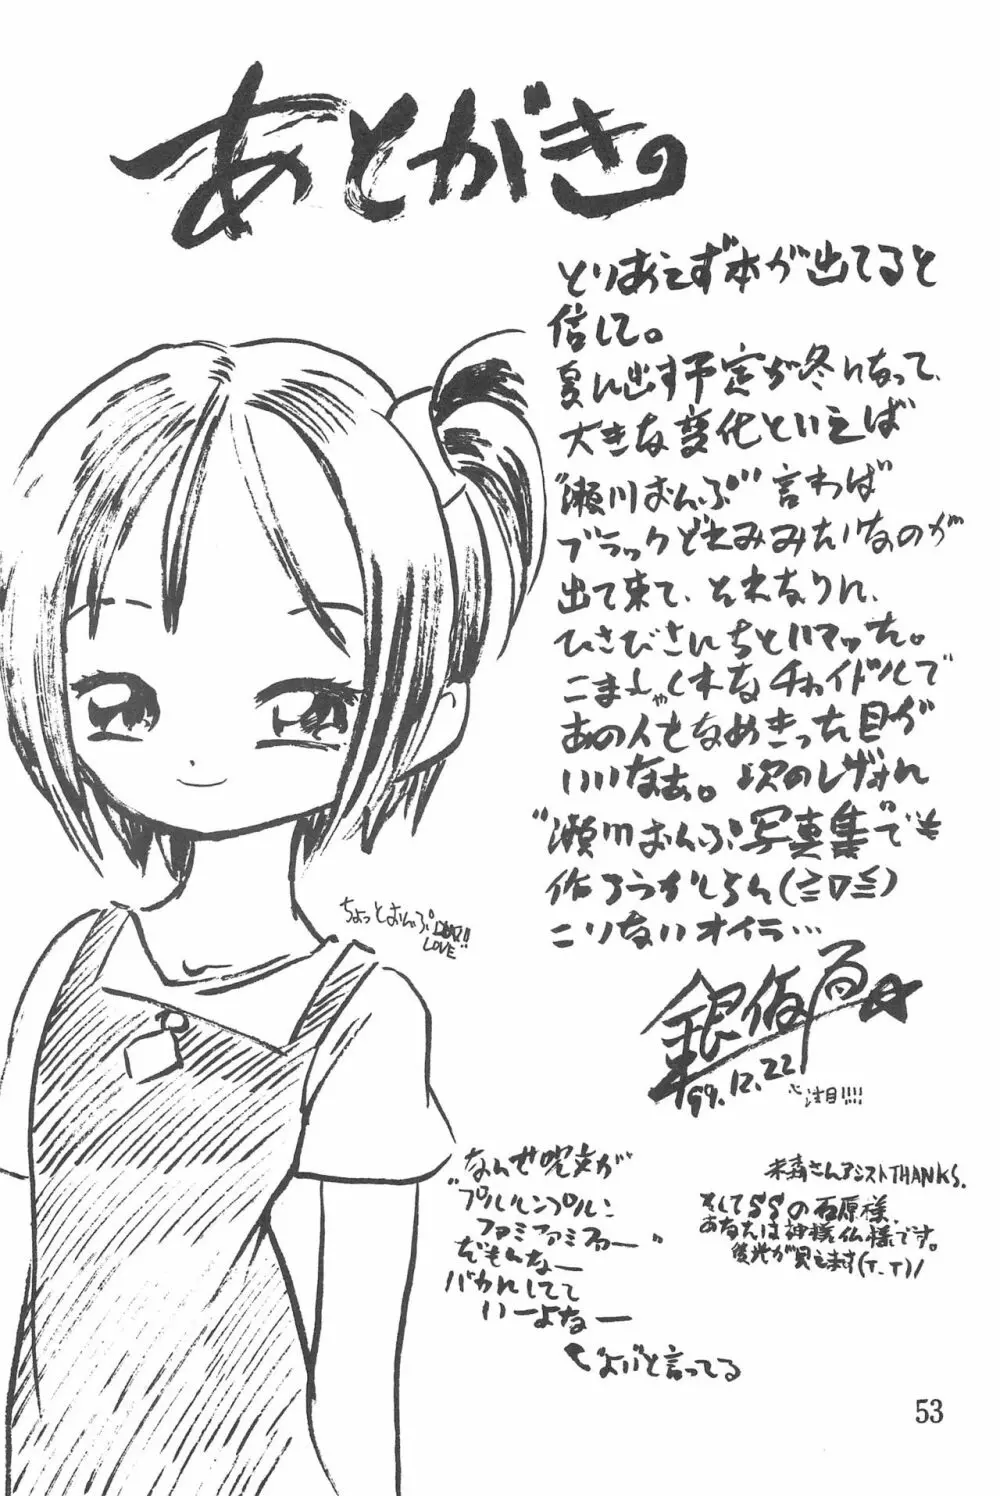 あとがき。
とりあえず本が出てると
信じて。
夏に出す予定が冬になって、
大きな変化といえば
"瀬川おんぷ"言わば
ブラックどれみみたいなのが
出て来て、それなりに、
ひさびさにちとハマった。
こましゃくれたチャイドルで
あの人をなめきった目が
いいなぁ。次のレヴォに
"瀬川おんぷ写真集"でも
作ろうかしらん(≧▽≦)
こりないオイラ…
ちょっとおんぷ
LOVE!!
銀仮面☆
'99.12.22
注目!!!!
なんせ呪文が
"プルルンプルン
ファミファミファー"
だもんなー
バカにしてて
いーよなー
でよいと言ってる
米森さんアシストTHANKS.
そしてSSの石原様
あなたは神様仏様です。
後光が見えます(T_T)/
53